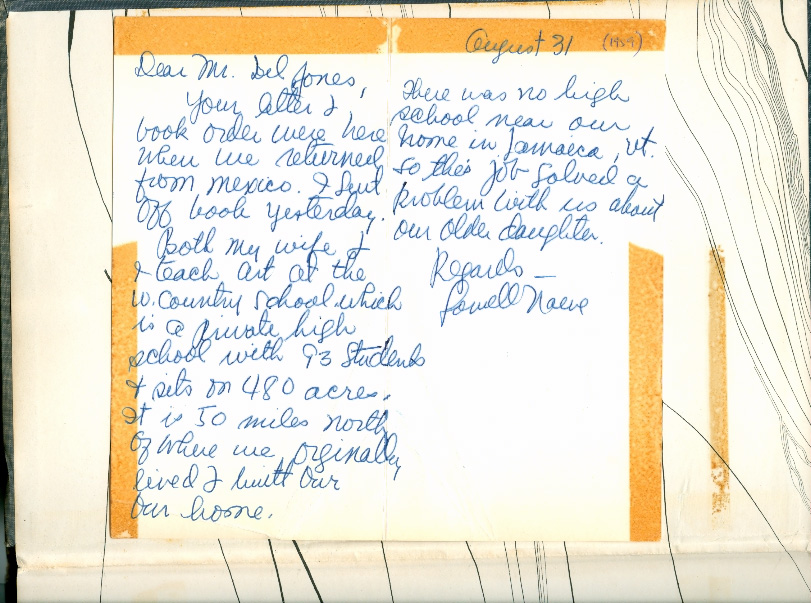 August 31 (1959)
Dear Mr. Del Jones,
Your letter &
book order were here
when we returned
from Mexico. I sent
off book yesterday.
Both my wife &
I teach art at the
W. Country School which
is a private high
school with 93 students
& sits on 480 acres.
It is 50 miles north
of where we orginally
lived & built our
our home.
There was no high
school near our
home in Jamaica, Vt.
so this job solved a
problem with us about
our older daughter.
Regards —
Lowell Naeve